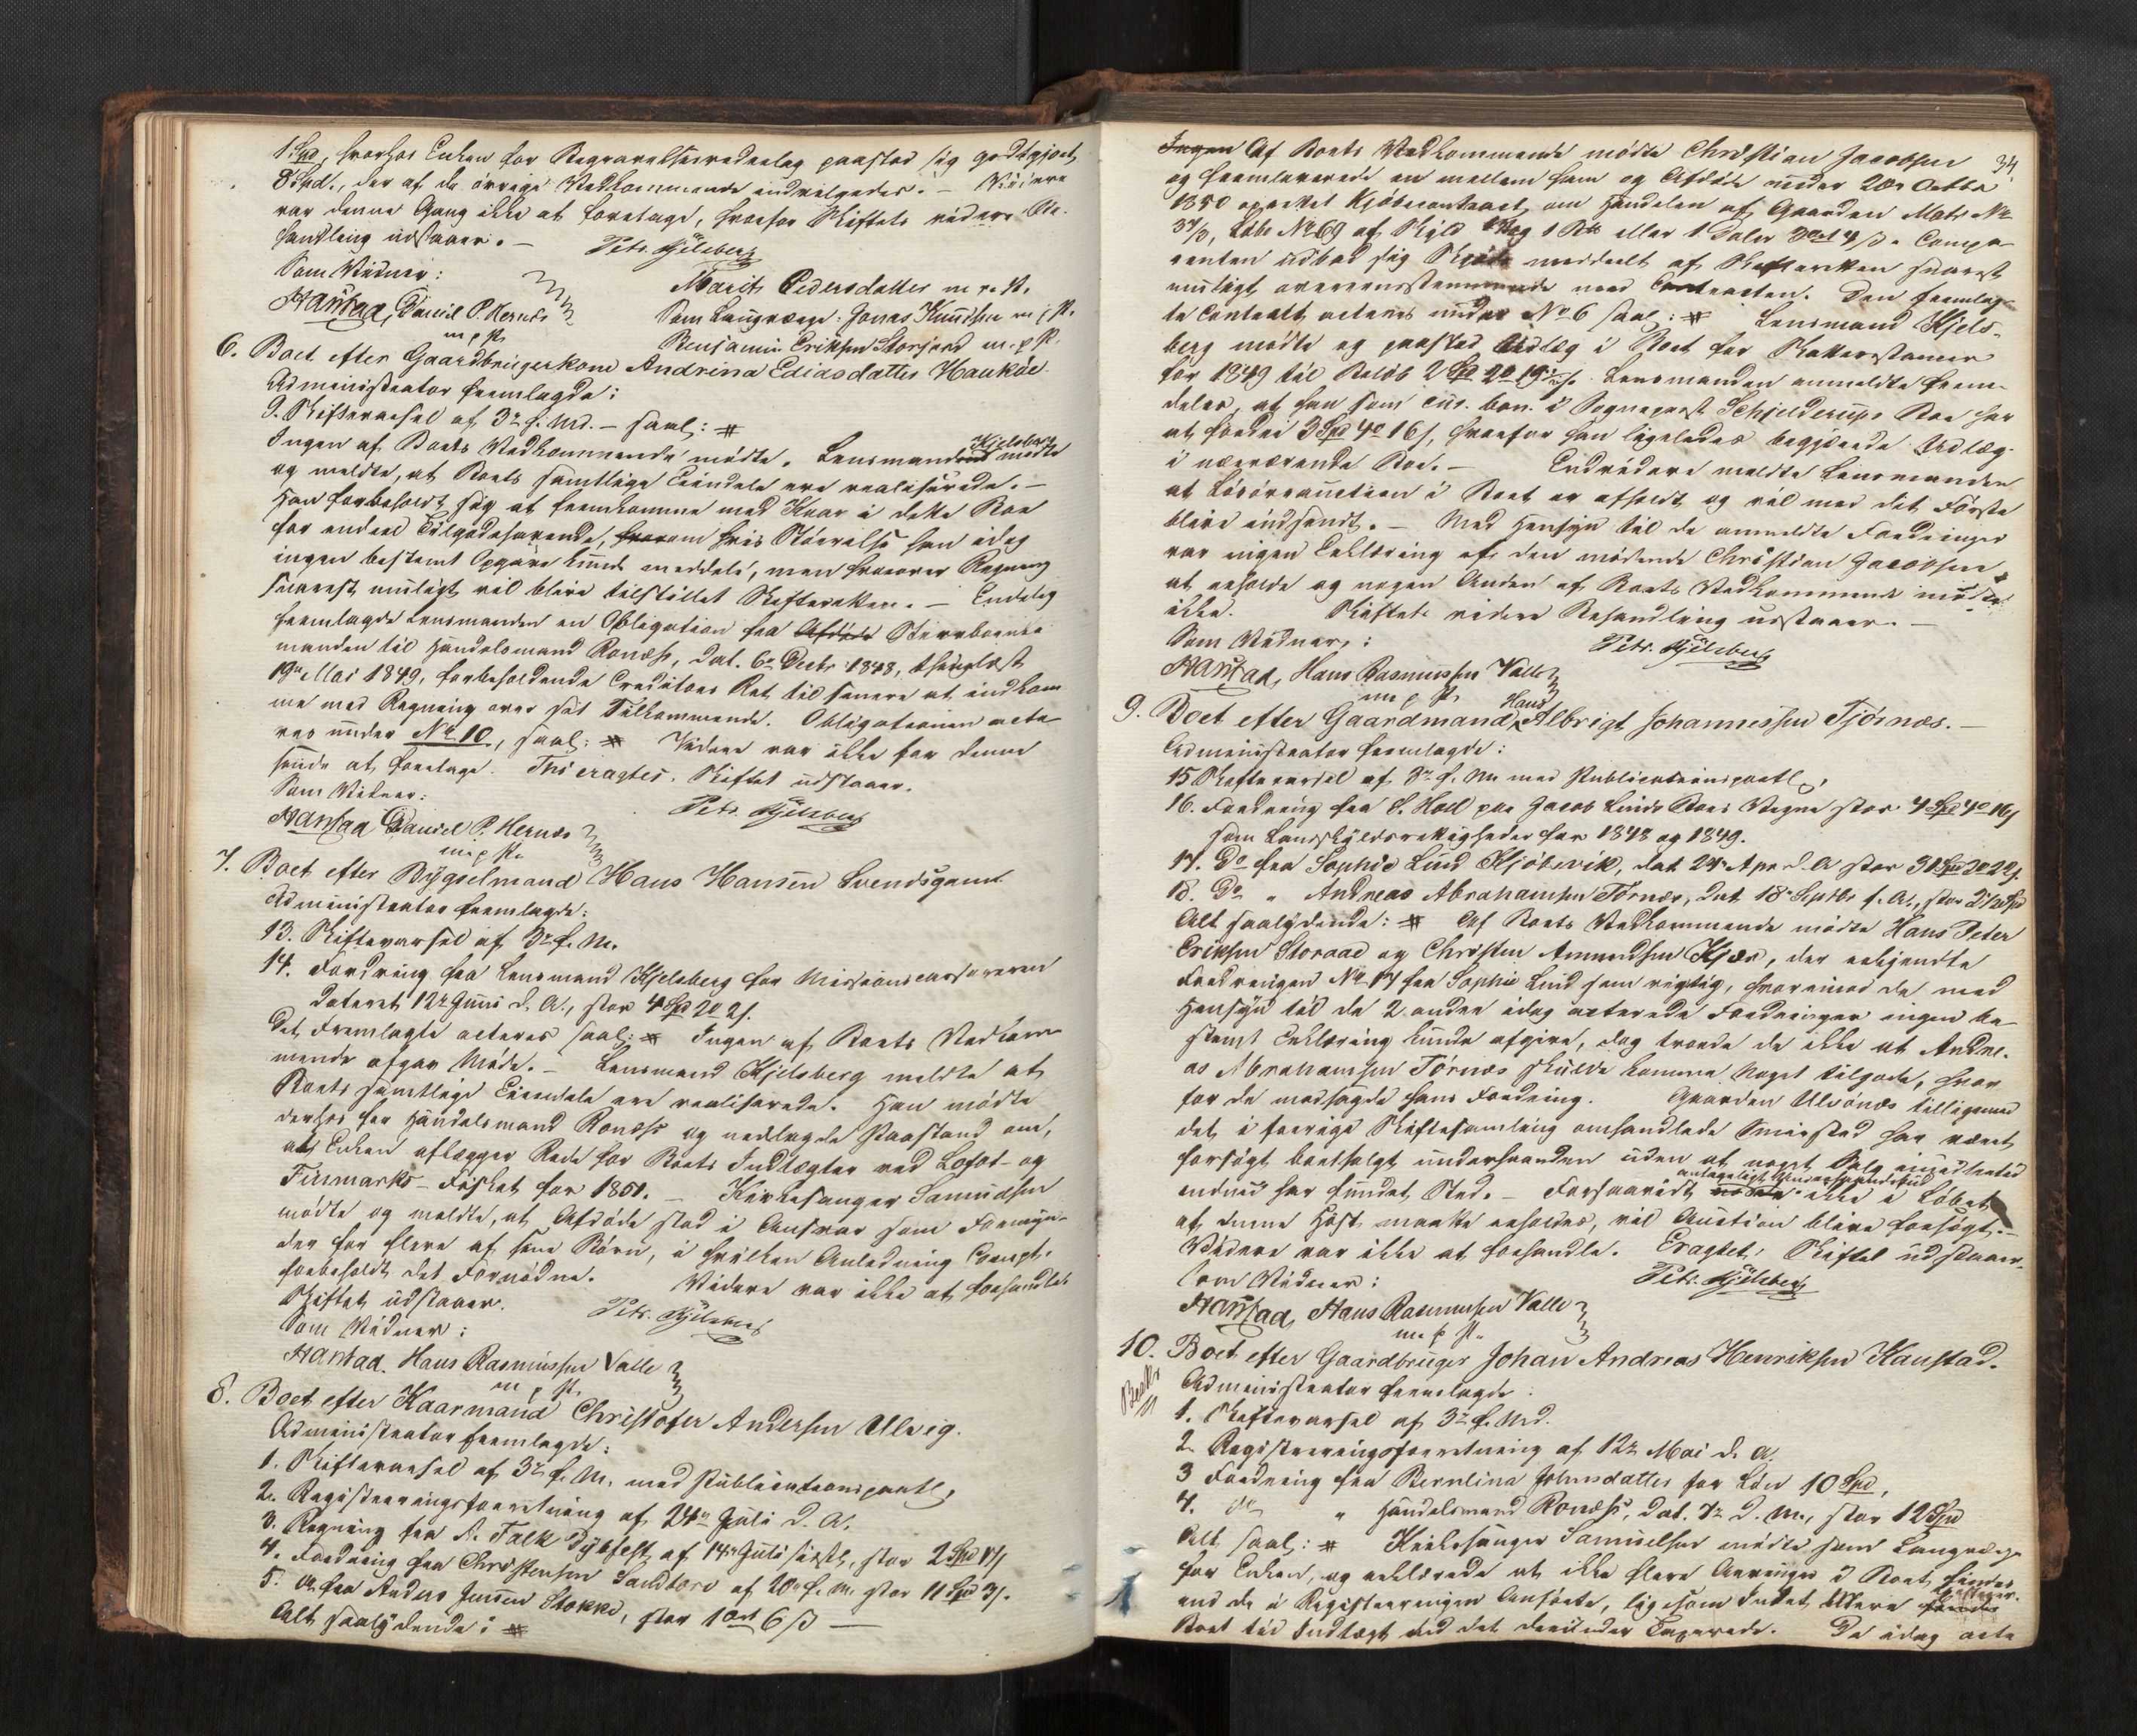 1 Spd, hvorhos Enken for Begravelsesvederlag paastod sig godtgjort
8 Spd., der af de øvrige Vedkommende indvilgedes. – Videre
var denne Gang ikke at foretage, hvorfor Skiftets videre Be-
handling udstaaer. – Petr. Kjelsberg
Som Vidner: Marith Pedersdatter m. p. P.
Harstad, Daniel P. Hernes Som Laugværge: Jonas Knudsen m. p. P.
m p P. Benjamin Eriksen Storjord m. p. P.
6. Boet efter Gaardbrugerkone Andrina Ediasdatter Haukøe.
Administrator fremlagde:
9. Skiftevarsel af 3die f. Md. – saal: #
Ingen af Boets Vedkommende mødte. Lensmand Kjelsberg mødte
og meldte, at Boets samtlige Eiendele ere realiserede. –
Han forbeholdt sig at fremkomme med Krav i dette Boe
for endeel Tilgodehavende, hvis Størrelse han idag
ingen bestemt Opgave kunde meddele, men hvorover Regning
snarest muligt vil blive tilstillet Skifteretten. – Endelig
fremlagde Lensmanden en Obligation fra Afdøde Stervboenke-
manden til Handelsmand Rones, dat. 6te Decbr 1848, thinglæst
19de Mai 1849, forbeholdende Creditors Ret til senere at indkom-
me med Regning over sit Tilkommende. Obligationen acte-
res under No 10, saal: # Videre var ikke for denne
sinde at foretage. Thi eragtes: Skiftet udstaaer.
Som Vidner: Petr. Kjelsberg
Harstad Daniel P. Hernes
m p P.
7. Boet efter Bygselmand Hans Hansen Svendsgamt
Administrator fremlagde:
13. Skiftevarsel af 3die f. M.
14. Fordring fra Lensmand Kjelsberg for Missionscassereren
dateret 12te Juni d. A., stor 4 Spd 2 o 2 s.
Det Fremlagte acteres saal: # Ingen af Boets Vedkom-
mende afgav Møde. – Lensmand Kjelsberg meldte at
Boets samtlige Eiendele ere realiserede. Han mødte
derhos for Handelsmand Rones og nedlagde Paastand om,
at Enken aflægger Rede for Boets Indtægter ved Lofot- og
Finmarks-Fisket for 1851. – Kirkesanger Samuelsen
mødte og meldte, at Afdøde stod i Ansvar som Formyn-
der for flere af sine Børn, i hvilken Anledning Compt.
forbeholdt det Fornødne. Videre var ikke at forhandle.
Skiftet udstaaer. Petr. Kjelsberg
Som Vidner:
Harstad. Hans Rasmussen Valle
m p P.
8. Boet efter Kaarmand Christofer Andersen Ulvig.
Administrator fremlagde:
1. Skiftevarsel af 3die f. M. med Publicationspaategn,
2. Registreringsforretning af 24de Juli d. A.
3. Regning fra A. Falk af 14de Juli sidstl., stor 2 Spd
4. Fordring fra Christensen Sandtorv af 20de f. M. stor 11 Spd 3 s.
5. do fra Anders Jensen Stokke, stor 1 ort 6 s –
Alt saalydende: #
34.
Ingen Af Boets Vedkommende mødte Christian Jacobsen
og fremleverede en mellem ham og Afdøde under 20de Octbr
1850 oprettet Kjøbecontract om Handelen af Gaarden Matr No
37/3, Løbe No 69 af Skyld 1 eller 1 Daler 3 ort 4 s. Compa-
renten udbad sig Skjøde meddeelt af Skifteretten snarest
muligt overensstemmende med Contracten. Den fremlag-
te Contract acteres under No 6 saal: # Lensmand Kjels-
berg mødte og paastod Udlæg i Boet for Skatterestancer
for 1849 til Beløb 2 Spd 2 o 19 s. Lensmanden anmeldte frem-
deles, at han som cur. bon. i Sogneprest Schjelderups Boe har
at fordre 3 Spd 4 o 16 s, hvorfor han ligeledes begjærede Udlæg
i nærværende Boe. – Endvidere meldte Lensmanden
at Løsøreauction i Boet er afholdt og vil med det Første
blive indsendt. – Med Hensyn til de anmeldte Fordringer
var ingen Erklæring af den mødende Christian Jacobsen
at erholde og nogen Anden af Boets Vedkommende mødte
ikke. Skiftets videre Behandling udstaaer. –
Som Vidner: Petr. Kjelsberg
Harstad, Hans Rasmussen Valle
m p P.
9. Boet efter Gaardmand Hans Albrigt Johannessen Tjørnes. –
Administrator fremlagde:
15 Skiftevarsel af 3die f. M. med Publicationspaategn,
16. Fordring fra S. Holl paa Jacob Linds Boes Vegne stor 4 Spd 4 o 16 s
som Landskyldsrettigheder for 1848 og 1849.
17. Do fra Sophie Lind Kjøbsvik, dat 24de Apr d. A stor 31 Spd 2 o 22 s.
18. Do " Andreas Abrahamsen Tørnes, dat 18de Septbr f. A., stor Spd
Alt saalydende: # Af Boets Vedkommende mødte Hans Peter
Eriksen Storaae og Christen Amundsen Kjær, der erkjendte
Fordringen No 17 fra Sophie Lind som rigtig, hvorimod de med
Hensyn til de 2 andre idag acterede Fordringer ingen be-
stemt Erklæring kunde afgive, dog troede de ikke at Andre-
as Abrahamsen Tørnes skulde komme Noget tilgode, hvor-
for de modsagde hans Fordring. Gaarden Ulvønes tilligemed
det i forrige Skiftesamling omhandlede har været
forsøgt bortsolgt underhaanden uden at noget Salg imidlertid
endnu har fundet Sted. – Forsaavidt antageligt Underhaandsbud ikke i Løbet
af denne Høst maatte erholdes, vil Auction blive forsøgt. –
Videre var ikke at forhandle. Eragtet: Skiftet udstaaer.
Som Vidner: Petr. Kjelsberg
Harstad, Hans Rasmussen Valle
m p P.
10. Boet efter Gaardbruger Johan Andreas Henriksen Kanstad.
Administrator fremlagde:
1. Skiftevarsel af 3die f. Md.
2. Registreringsforretning af 12te Mai d. A.
3 Fordring fra Bernlina Johnsdatter for Løn 10 Spd,
4. do " Handelsmand Rones, dat. 7de d. M., stor 12 Spd
Alt saal: # Kirkesanger Samuelsen mødte som Laugværge
for Enken, og erklærede at ikke flere Arvinger i Boet findes
end de i Registreringen Anførte, ligesom Intet Mere tilhører
Boet til Indtægt end det deriunder Taxerede. De idag acte-